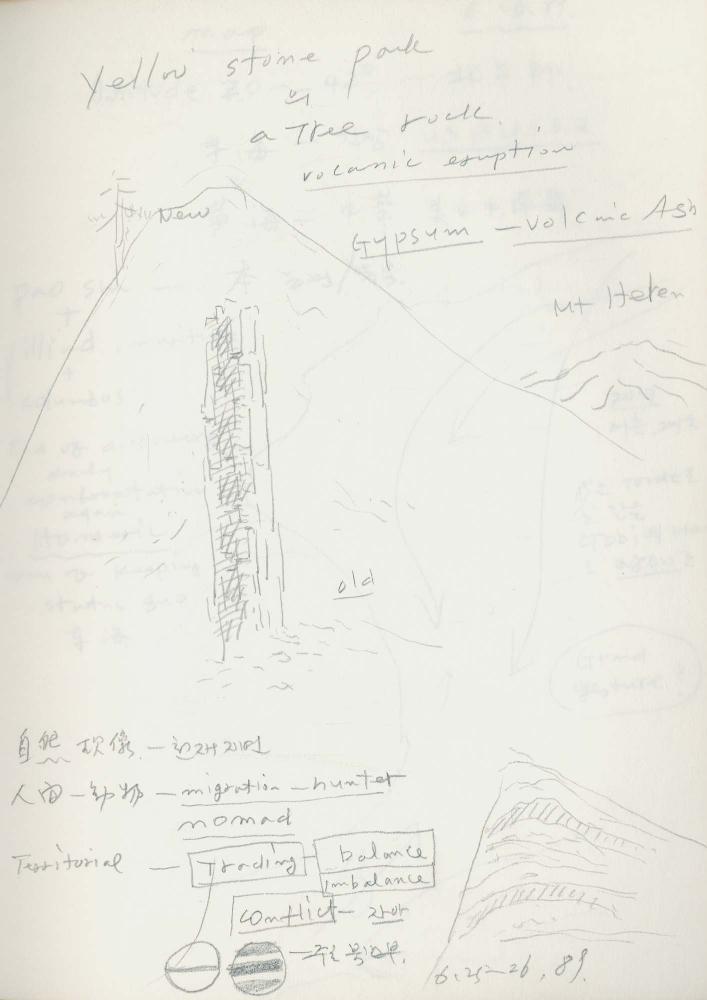 Yellow stone park
의
a Tree rock.
volcanic eruption
New
Gypsum — volcnic Ash
Mt Helen
old
自然 現像 — 천재지변
人间 — 動物 — migration — hunter
nomad
Territorial — Trading balance
imbalance
conflict —
6.25–26, 89.